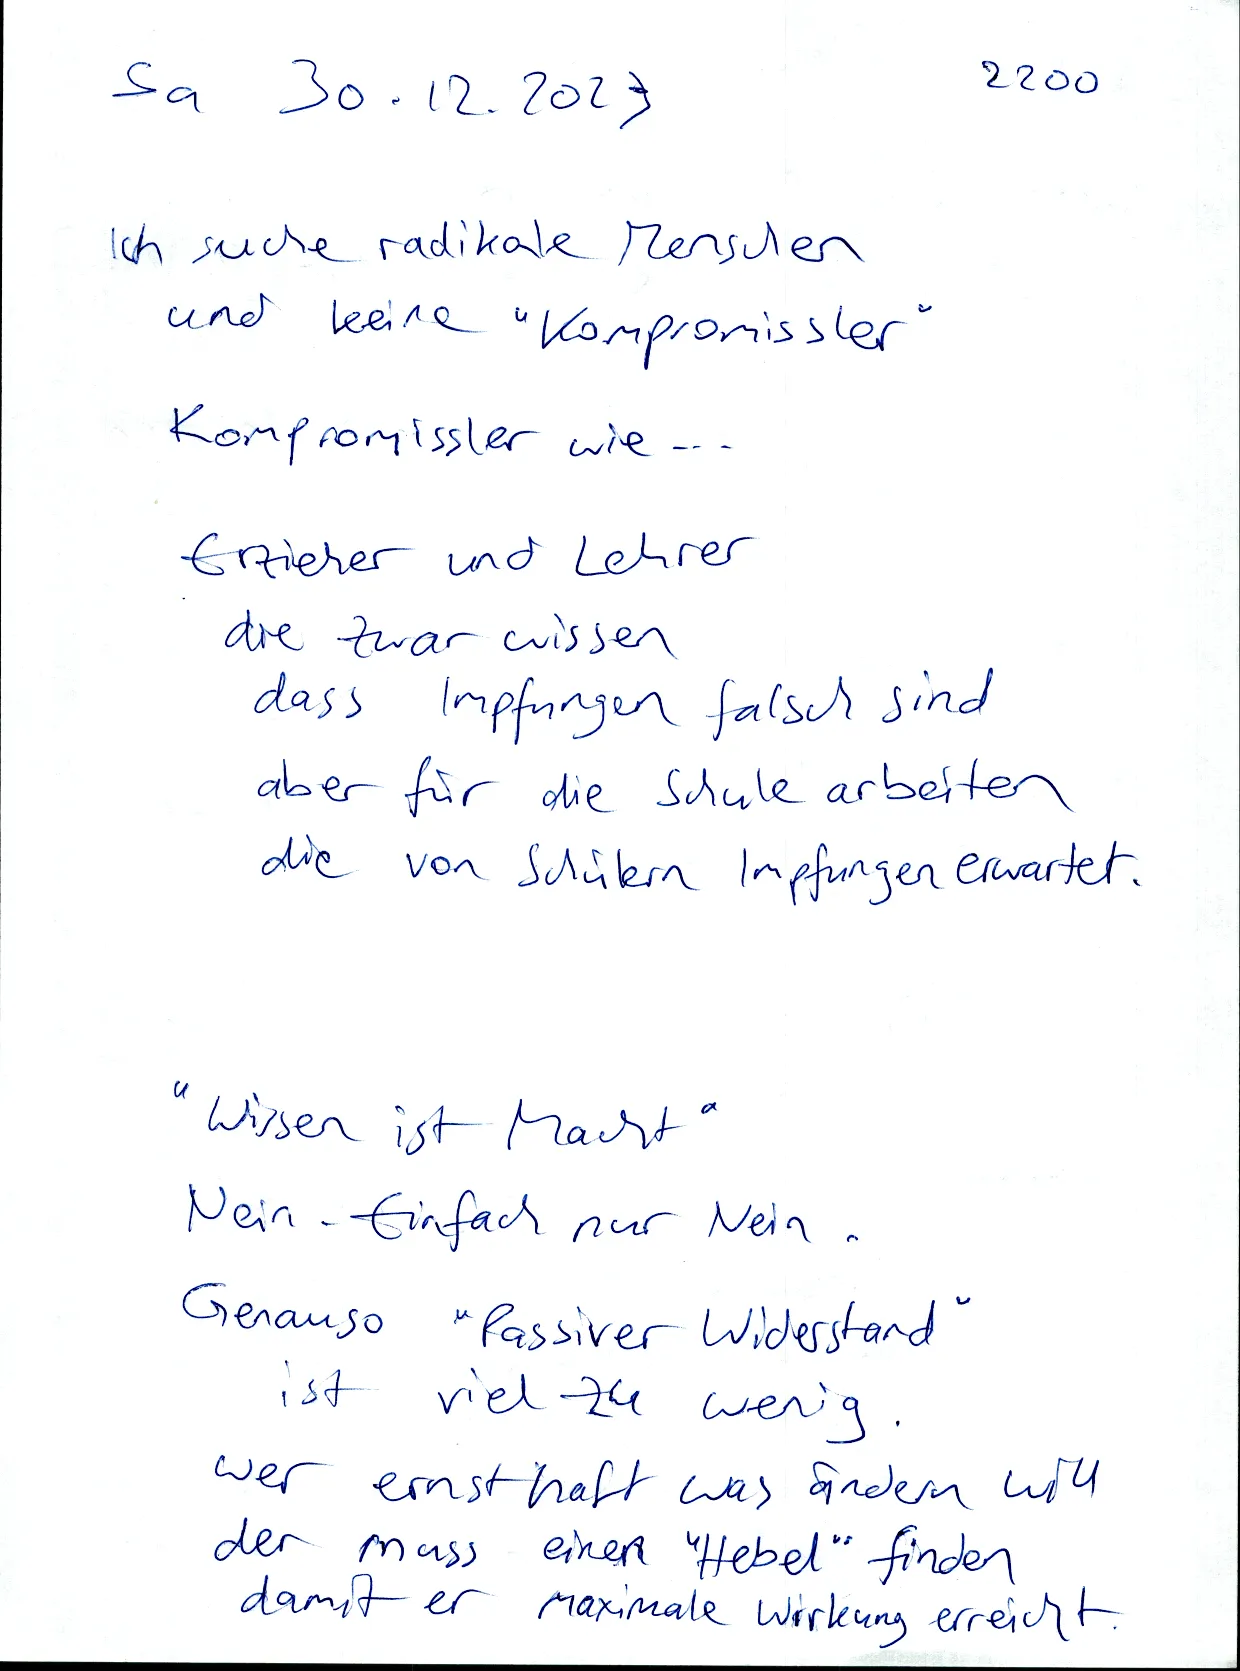 Sa 30.12.2023 2200
Ich suche radikale Menschen
und keine "Kompromissler"
Kompromissler wie ...
Erzieher und Lehrer
die zwar wissen
dass Impfungen falsch sind
aber für die Schule arbeiten
die von Schülern Impfungen erwartet.
"Wissen ist Macht"
Nein - Einfach nur Nein.
Genauso "Passiver Widerstand"
ist viel zu wenig.
wer ernsthaft was ändern will
der muss einen "Hebel" finden
damit er maximale Wirkung erreicht.